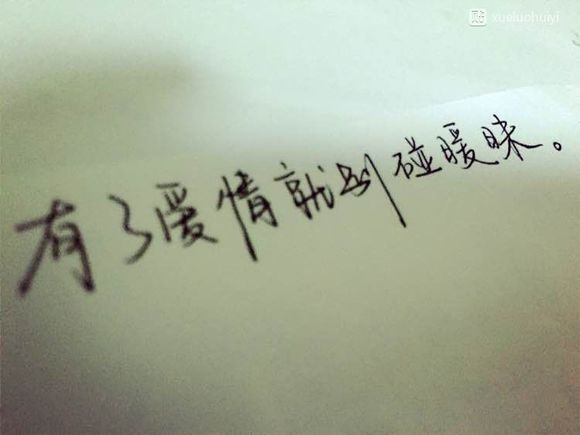 xueluohuiyi
有了爱情就别碰暧昧。